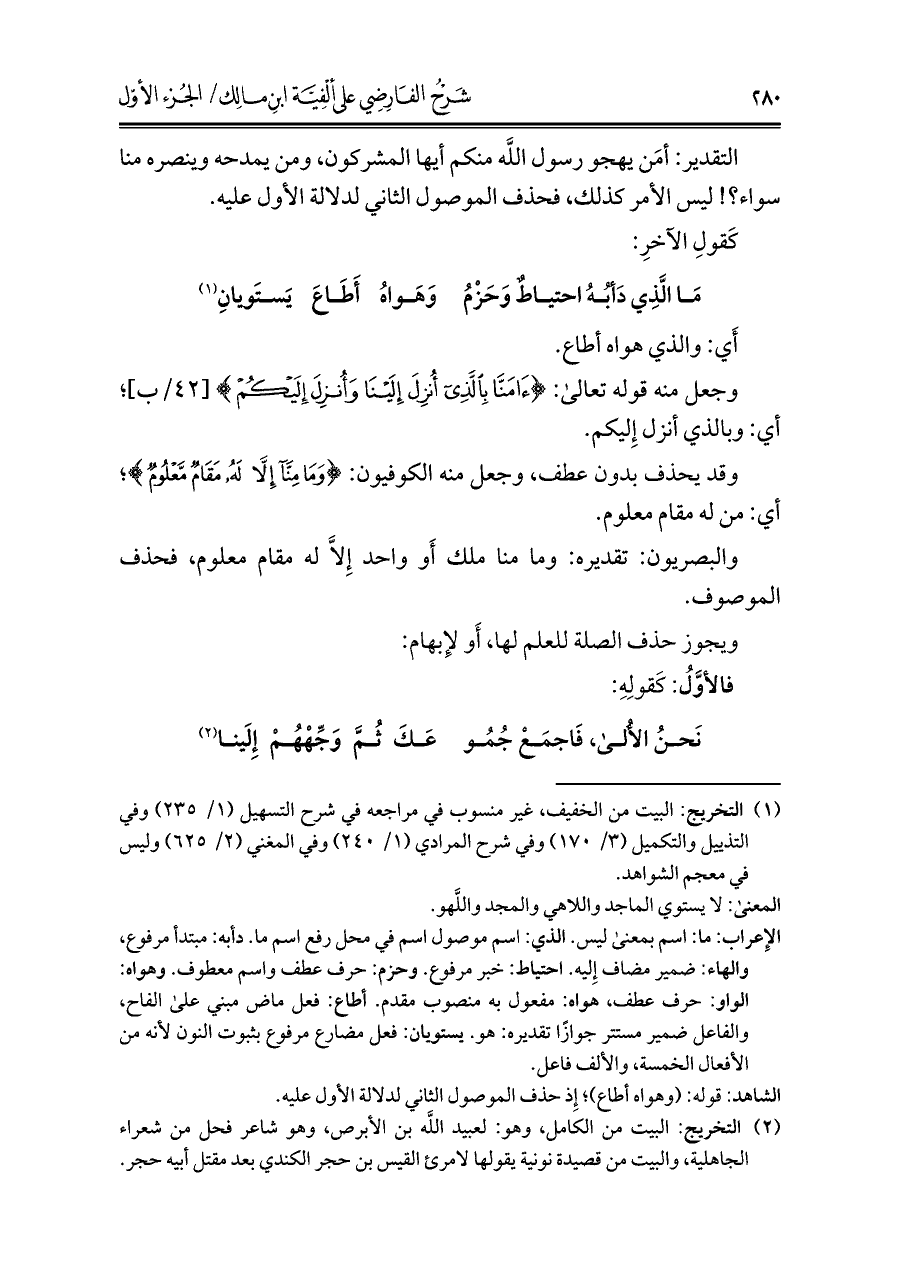 ٢٨٠ شرح الفارضي على ألفية ابن مالك/ الجزء الأول
التقدير: أمَن يهجو رسول اللَّه منكم أيها المشركون، ومن يمدحه وينصره منا
سواء؟! ليس الأمر كذلك، فحذف الموصول الثاني لدلالة الأول عليه.
كَقولِ الآخرِ:
مَـا الَّذِي دَأبُـهُ احتيـاطٌ وَحَزْمُ وَهَـواهُ أَطَـاعَ يَستَويانِ(١)
أَي: والذي هواه أطاع.
وجعل منه قوله تعالىٰ: ﴿ءَامَنَّا بِٱلَّذِىٓ أُنزِلَ إِلَيۡنَا وَأُنزِلَ إِلَيۡكُمۡ﴾ [٤٢/ ب]؛
أي: وبالذي أنزل إليكم.
وقد يحذف بدون عطف، وجعل منه الكوفيون: ﴿وَمَا مِنَّآ إِلَّا لَهُۥ مَقَامٞ مَّعۡلُومٞ﴾؛
أي: من له مقام معلوم.
والبصريون: تقديره: وما منا ملك أَو واحد إِلاَّ له مقام معلوم، فحذف
الموصوف.
ويجوز حذف الصلة للعلم لها، أَو لإِبهام:
فالأوَّلُ: كَقولِهِ:
نَحـنُ الأُلـىٰ، فَاجمَـعْ جُمُـو عَـكَ ثُـمَّ وَجِّهْهُـمْ إِلَينـا(٢)
(١) التخريج: البيت من الخفيف، غير منسوب في مراجعه في شرح التسهيل (١/ ٢٣٥) وفي
التذييل والتكميل (٣/ ١٧٠) وفي شرح المرادي (١/ ٢٤٠) وفي المغني (٢/ ٦٢٥) وليس
في معجم الشواهد.
المعنىٰ: لا يستوي الماجد واللاهي والمجد واللَّهو.
الإعراب: ما: اسم بمعنىٰ ليس. الذي: اسم موصول اسم في محل رفع اسم ما. دأبه: مبتدأ مرفوع،
والهاء: ضمير مضاف إليه. احتياط: خبر مرفوع. وحزم: حرف عطف واسم معطوف. وهواه:
الواو: حرف عطف، هواه: مفعول به منصوب مقدم. أطاع: فعل ماض مبني علىٰ الفاح،
والفاعل ضمير مستتر جوازًا تقديره: هو. يستويان: فعل مضارع مرفوع بثبوت النون لأنه من
الأفعال الخمسة، والألف فاعل.
الشاهد: قوله: (وهواه أطاع)؛ إذ حذف الموصول الثاني لدلالة الأول عليه.
(٢) التخريج: البيت من الكامل، وهو: لعبيد اللَّه بن الأبرص، وهو شاعر فحل من شعراء
الجاهلية، والبيت من قصيدة نونية يقولها لامرئ القيس بن حجر الكندي بعد مقتل أبيه حجر.